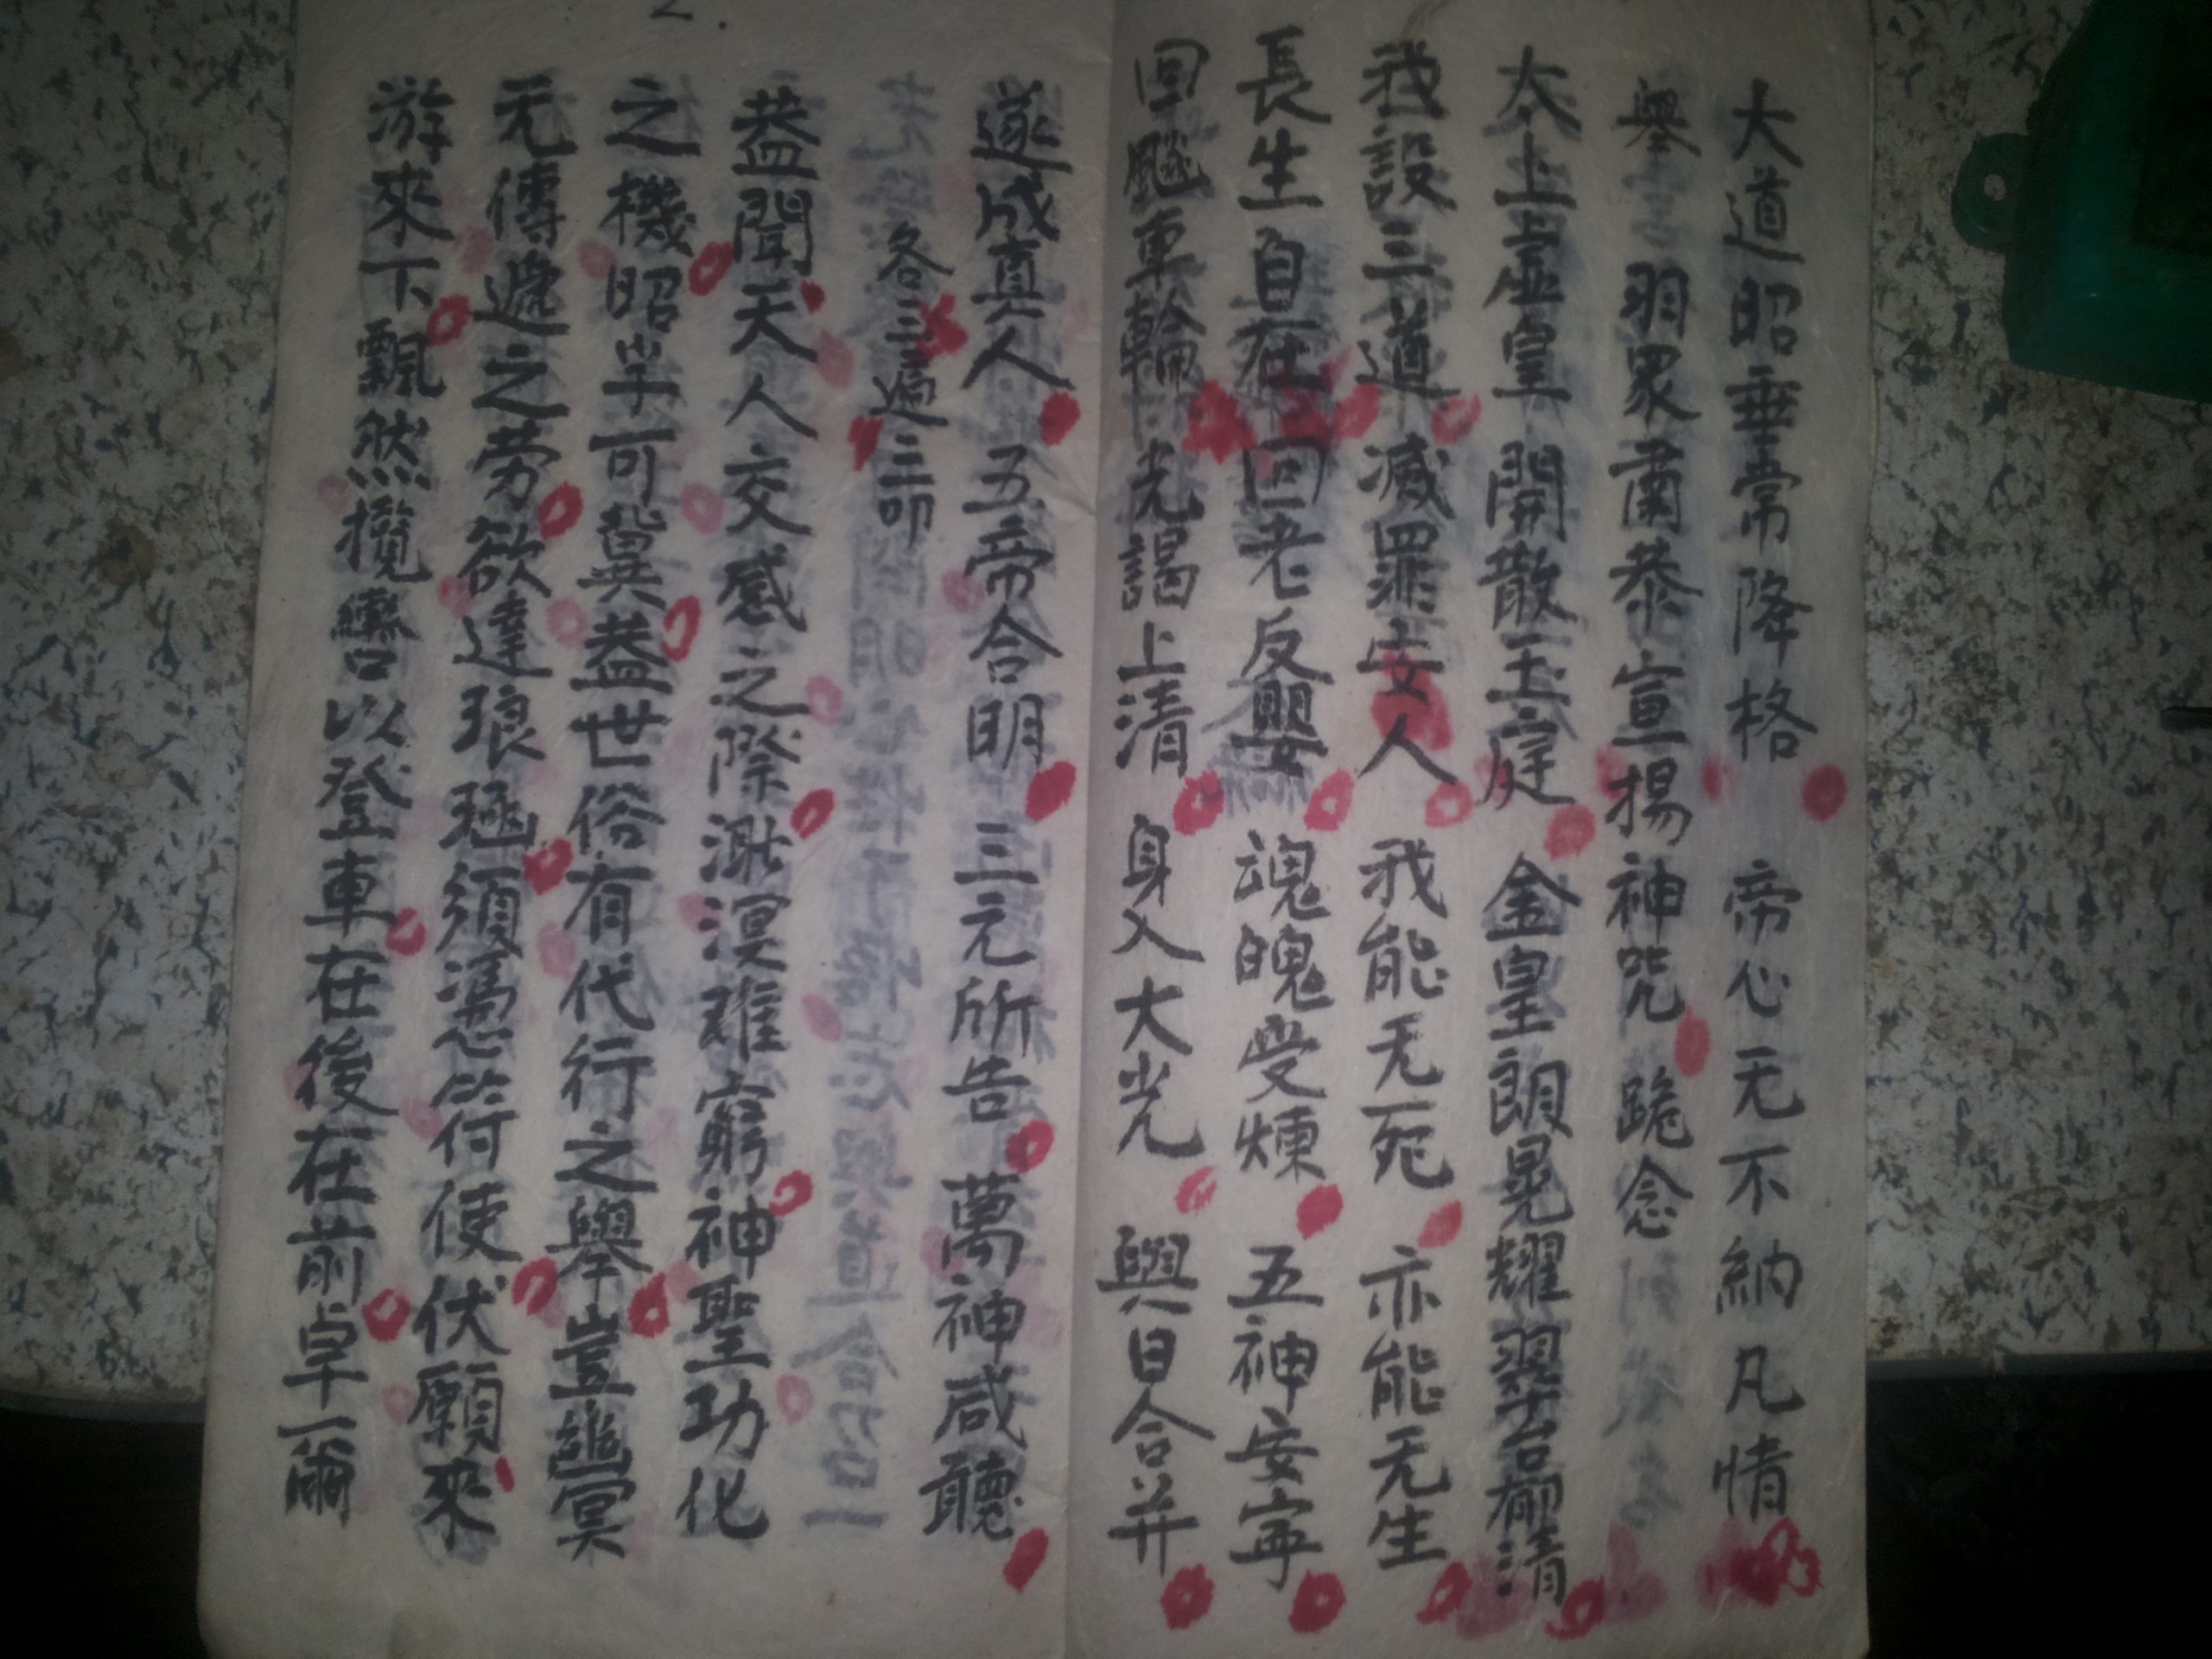 大道昭垂常降格 帝心无不納凡情
舉 羽眾肅恭宣揚神咒 跪念
太上虛皇 開散玉庭 金皇朗晃耀翠雲郁清
我設三道 滅罪女人 我能无死 亦能无生
長生自在 回老反嬰 魂魄受煉 五神安寧
回飈車輪 光謁上清 身入大光 與日合并
遂成真人 五帝合明 三元所告 萬神咸聽
各三遍三叩
盖聞天人交感之際渺溟难窮神聖功化
之機昭半可冀盖世俗有代行之舉豈幽冥
无傳遞之劳欲達琅函須憑符使伏願來
游來下飄然攬轡以登車在後在前卓爾
2.